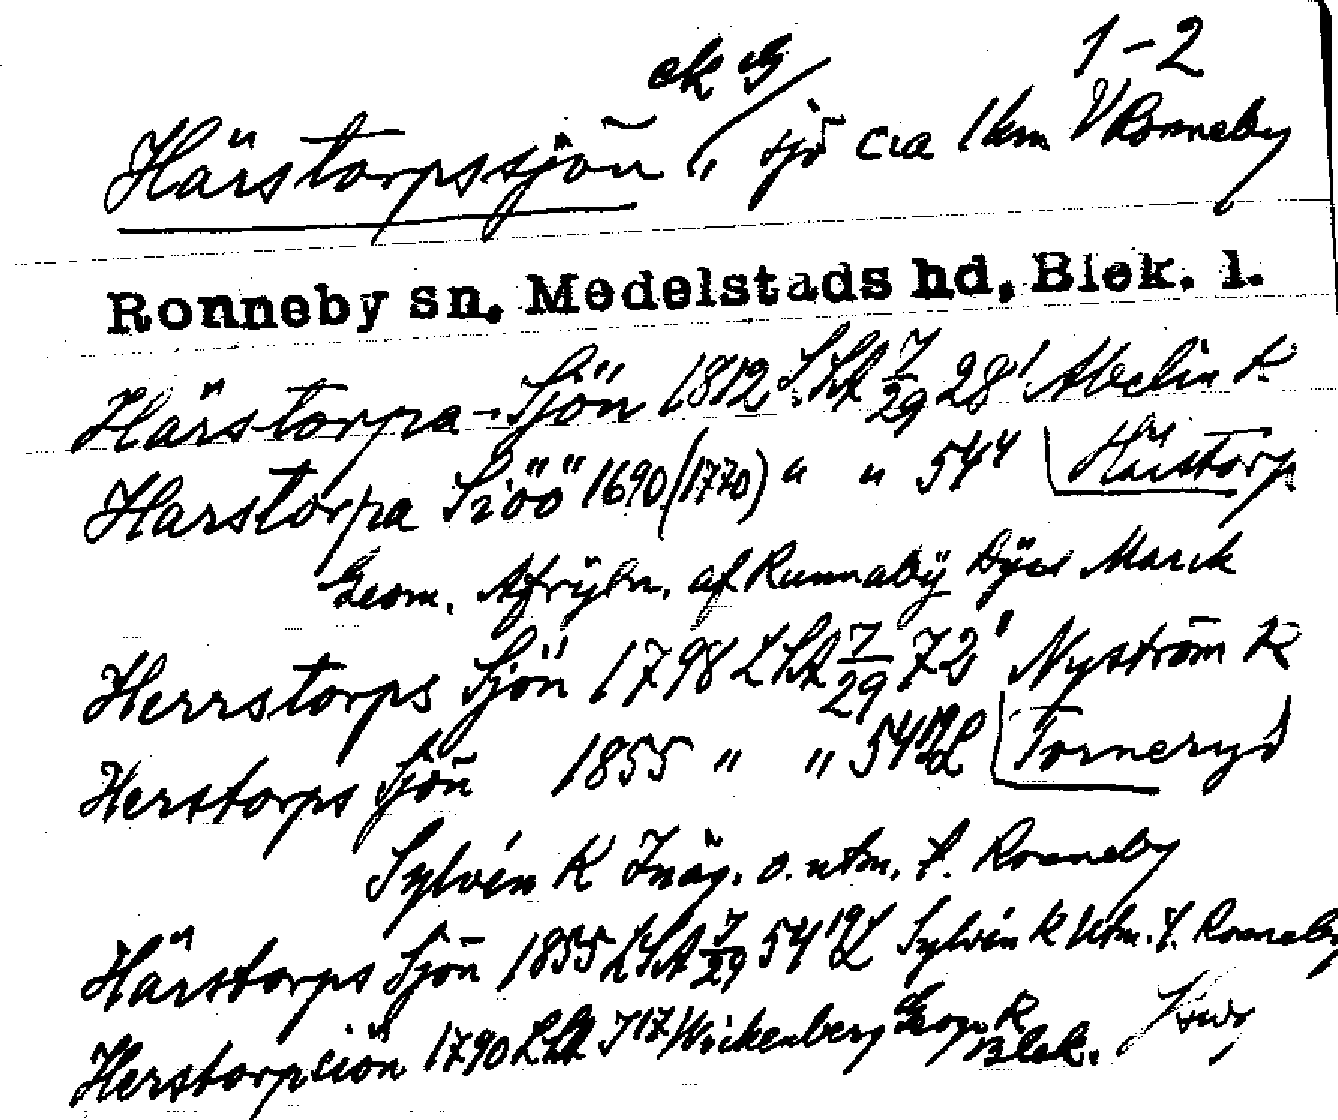 1-2
ek G
Härstorpssjön " sjö cia 1 km V Ronneby
Ronneby sn. Medelstads hd, Blek. l.
Härstorpa-Sjön 1812 LSA 7/29 28' Abelin K.
Harstorpa Siöö 1690 (1770) " " 54 4 Härstorp
Geom. Afrijtn. af Runnabÿ Bÿes Marck
Herrstorps Sjön 1798 LSA 7/29 72' Nyström K
Herstorps Sjön 1855 " " 54 19/2 L Torneryd
Sylvén K Inäg. o. utm. t. Ronneby
Härstorps Sjön 1855 LSA 7/29 54 19/2 L Sylvén K Utm. t. Ronneby
Herstorpciön 1790 LSA J 17/ Wickenberg Geogr K Blek.